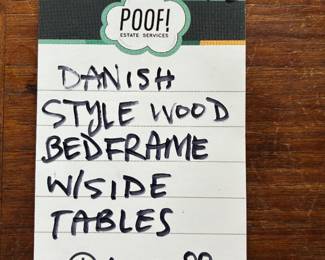 POOF!
ESTATE SERVICES
DANISH
STYLE WOOD
BEDFRAME
W/SIDE
TABLES